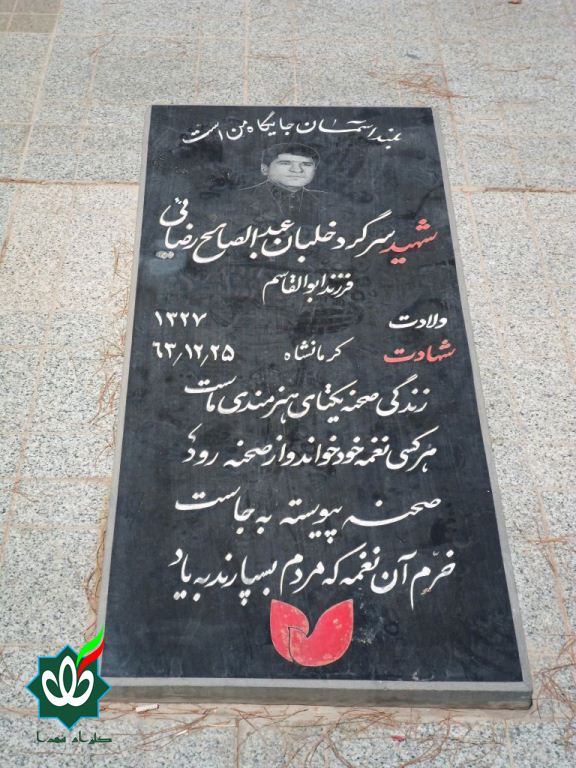 بلندا آسمان جایگاه من است
شهید سرگرد خلبان عبدالصالح رضائی
فرزند ابوالقاسم
ولادت ۱۳۲۷
شهادت کرمانشاه ۶۳٫۱۲٫۲۵
زندگی صحنه یکتای هنرمندی ماست
هرکسی نغمه خود خواند و از صحنه رود
صحنه پیوسته به جاست
خرّم آن نغمه که مردم بسپارند به یاد